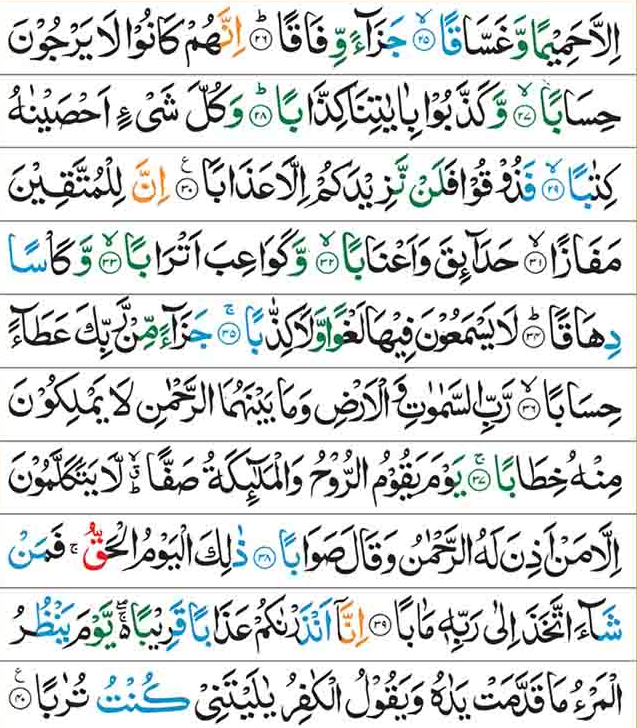 اِلَّا حَمِيْمًا وَّ غَسَّاقًا ۙ‏﴿۲۵﴾ جَزَآءً وِّفَاقًا ؕ‏﴿۲۶﴾ اِنَّهُمْ كَانُوْا لَا يَرْجُوْنَ
حِسَابًا ۙ‏﴿۲۷﴾ وَّ كَذَّبُوْا بِاٰيٰتِنَا كِذَّابًا ؕ‏﴿۲۸﴾ وَ كُلَّ شَیْءٍ اَحْصَيْنٰهُ
كِتٰبًا ۙ‏﴿۲۹﴾ فَذُوْقُوْا فَلَنْ نَّزِيْدَكُمْ اِلَّا عَذَابًا ﴿۳۰﴾ ع اِنَّ لِلْمُتَّقِيْنَ
مَفَازًا ۙ‏﴿۳۱﴾ حَدَآئِقَ وَ اَعْنَابًا ۙ‏﴿۳۲﴾ وَّ كَوَاعِبَ اَتْرَابًا ۙ‏﴿۳۳﴾ وَّ كَاْسًا
دِهَاقًا ؕ‏﴿۳۴﴾ لَا يَسْمَعُوْنَ فِيْهَا لَغْوًا وَّ لَا كِذّٰبًا ۚ‏﴿۳۵﴾ جَزَآءً مِّنْ رَّبِّكَ عَطَآءً
حِسَابًا ۙ‏﴿۳۶﴾ رَّبِّ السَّمٰوٰتِ وَ الْاَرْضِ وَ مَا بَيْنَهُمَا الرَّحْمٰنِ لَا يَمْلِكُوْنَ
مِنْهُ خِطَابًا ۚ‏﴿۳۷﴾ يَوْمَ يَقُوْمُ الرُّوْحُ وَ الْمَلٰٓئِكَةُ صَفًّا ؕۙ لَّا يَتَكَلَّمُوْنَ
اِلَّا مَنْ اَذِنَ لَهُ الرَّحْمٰنُ وَ قَالَ صَوَابًا ﴿۳۸﴾ ذٰلِكَ الْيَوْمُ الْحَقُّ ۚ فَمَنْ
شَآءَ اتَّخَذَ اِلٰى رَبِّهٖ مَاٰبًا ﴿۳۹﴾ اِنَّاۤ اَنْذَرْنٰكُمْ عَذَابًا قَرِيْبًا ۖۚ يَّوْمَ يَنْظُرُ
الْمَرْءُ مَا قَدَّمَتْ يَدٰهُ وَ يَقُوْلُ الْكٰفِرُ يٰلَيْتَنِیْ كُنْتُ تُرٰبًا ﴿۴۰﴾ ع